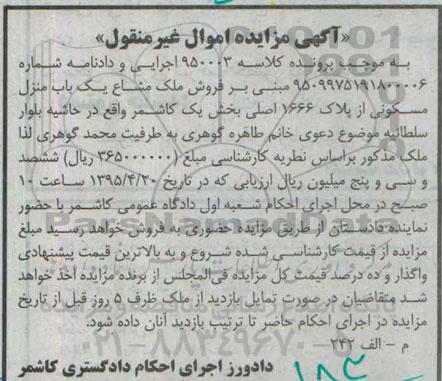 «آگهی مزایده اموال غیرمنقول»
به موجب پرونده کلاسه ۹۵۰۰۰۳ اجرایی و دادنامه شماره
۹۵۰۹۹۷۵۱۹۱۸۰۰۰۰۶ مبنی بر فروش ملک مشاع یک باب منزل
مسکونی از پلاک ۱۶۶۶ اصلی بخش یک کاشمر واقع در حاشیه بلوار
سلطانیه موضوع دعوی خانم طاهره گوهری به طرفیت محمد گوهری لذا
ملک مذکور براساس نظریه کارشناسی مبلغ (۳۶۵۰۰۰۰۰۰ ریال) ششصد
و سی و پنج میلیون ریال ارزیابی که در تاریخ ۱۳۹۵/۴/۲۰ ساعت ۱۰
صبح در محل اجرای احکام شعبه اول دادگاه عمومی کاشمر با حضور
نماینده دادستان از طریق مزایده حضوری به فروش خواهد رسید مبلغ
مزایده از قیمت کارشناسی شده شروع و به بالاترین قیمت پیشنهادی
واگذار و ده درصد قیمت کل مزایده فی‌المجلس از برنده مزایده اخذ خواهد
شد متقاضیان در صورت تمایل بازدید از ملک ظرف ۵ روز قبل از تاریخ
مزایده در اجرای احکام حاضر تا ترتیب بازدید آنان داده شود.
م - الف ۲۴۲
دادورز اجرای احکام دادگستری کاشمر
ParsNamadData
۰۲۱-۸۸۳۴۹۶۷۰